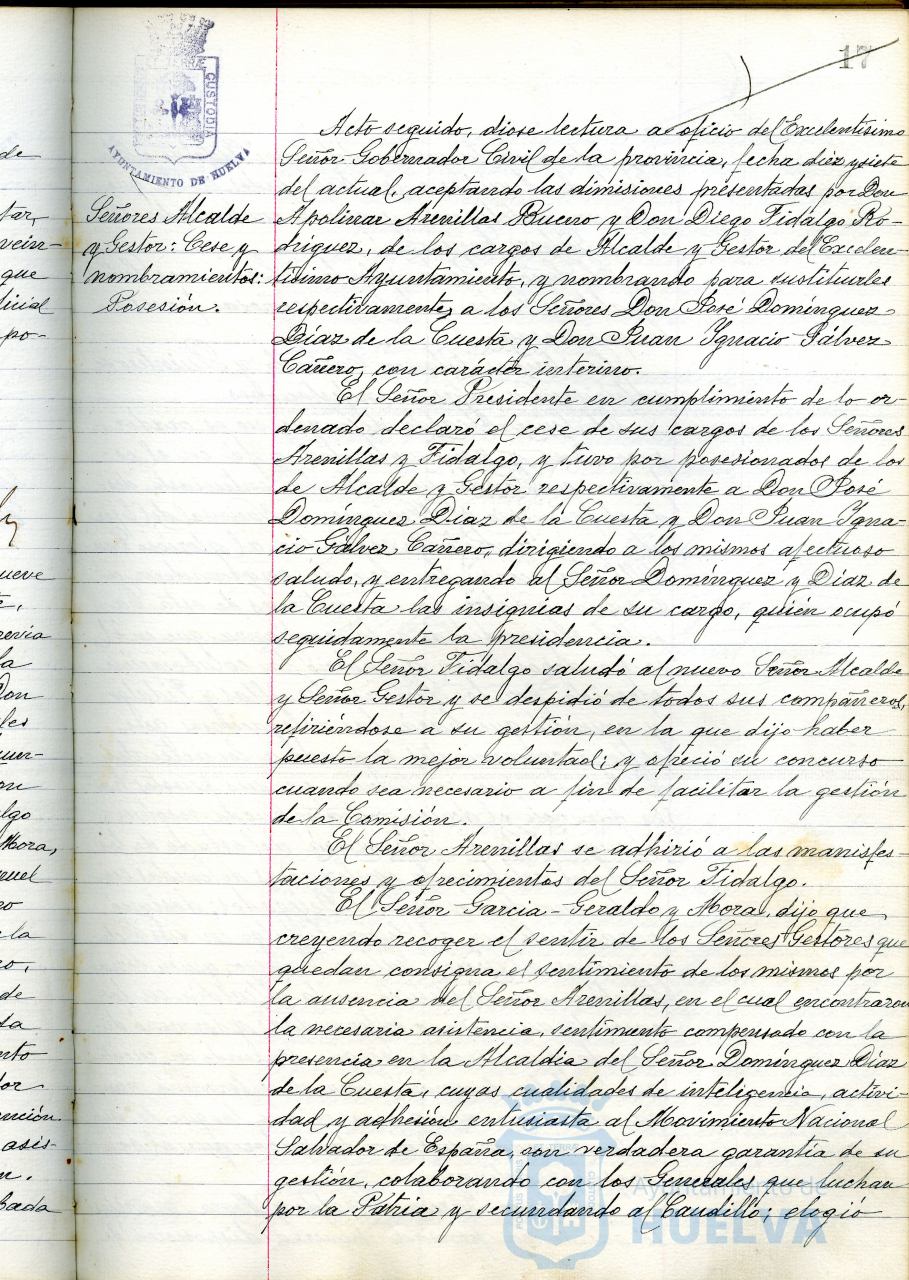 17
TERRÆ
CUSTODIA
AYUNTAMIENTO DE HUELVA
Señores Alcalde
y Gestor: Cese y
nombramientos:
Posesión.
Acto seguido, diose lectura a oficio del Excelentísimo
Señor Gobernador Civil de la provincia, fecha diez y siete
del actual, aceptando las dimisiones presentadas por Don
Apolinar Arenillas Bueno y Don Diego Fidalgo Ro-
driguez, de los cargos de Alcalde y Gestor del Excelen-
tísimo Ayuntamiento, y nombrando para sustituirles
respectivamente, a los Señores Don José Domínguez
Díaz de la Cuesta y Don Juan Ignacio Gálvez
Cañero, con carácter interino.
El Señor Presidente en cumplimiento de lo or-
denado declaró el cese de sus cargos de los Señores
Arenillas y Fidalgo, y tuvo por posesionados de los
de Alcalde y Gestor respectivamente a Don José
Domínguez Díaz de la Cuesta y Don Juan Igna-
cio Gálvez Cañero, dirigiendo a los mismos afectuoso
saludo, y entregando al Señor Domínguez y Díaz de
la Cuesta las insignias de su cargo, quién ocupó
seguidamente la presidencia.
El Señor Fidalgo saludó al nuevo Señor Alcalde
y Señor Gestor y se despidió de todos sus compañeros,
refiriéndose a su gestión, en la que dijo haber
puesto la mejor voluntad; y ofreció su concurso
cuando sea necesario a fin de facilitar la gestión
de la Comisión.
El Señor Arenillas se adhirió a las manisfes-
taciones y ofrecimientos del Señor Fidalgo.
El Señor Garcia-Geraldo y Mora, dijo que
creyendo recoger el sentir de los Señores Gestores que
quedan consigna el sentimiento de los mismos por
la ausencia del Señor Arenillas, en el cual encontraron
la necesaria asistencia, sentimiento compensado con la
presencia en la Alcaldia del Señor Domínguez Díaz
de la Cuesta, cuyas cualidades de inteligencia, activi-
dad y adhesión entusiasta al Movimiento Nacional
Salvador de España, son verdadera garantía de su
gestión, colaborando con los Generales que luchan
por la Patria y secundando al Caudillo; elogió
Ayuntamiento de
HUELVA